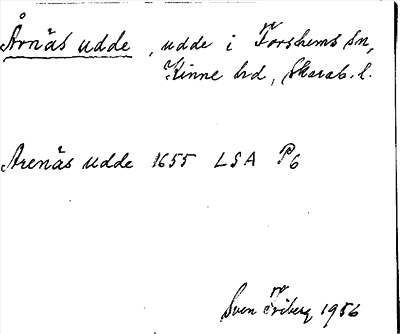 Årnäs udde, udde i Forshems sn,
Kinne hd, Skarab. l.
Arenäs udde 1655 LSA P6
Sven Friberg 1956